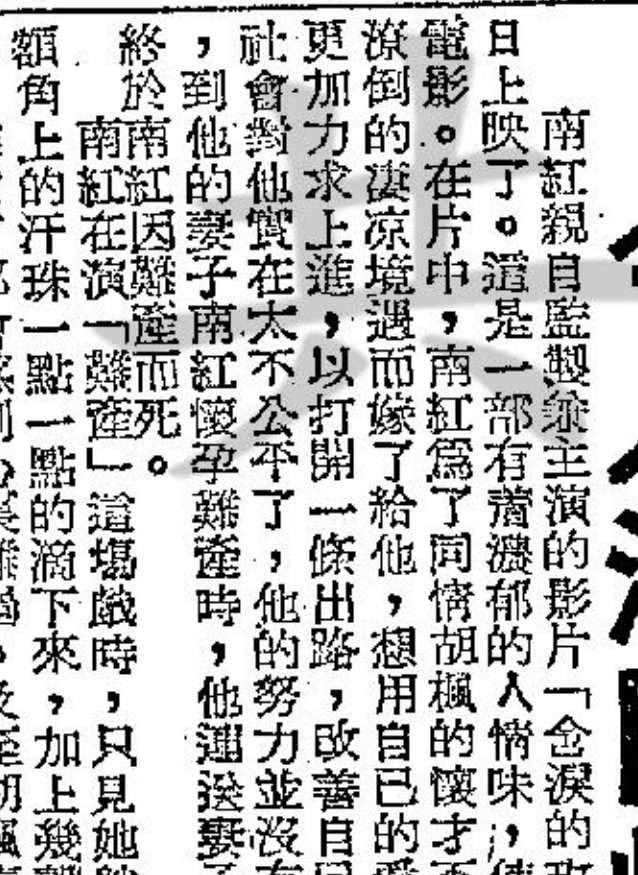 南紅親自監製兼主演的影片「含淚的玫
日上映了。這是一部有着濃郁的人情味,
電影。在片中,南紅爲了同情胡楓的懷才不
潦倒的凄凉境遇而嫁了給他,想用自己的愛
更加力求上進,以打開一條出路,改善自
社會對他實在太不公平了,他的努力並沒有
,到他的妻子南紅懷孕難產時,他運送妻子
終於南紅因難產而死。
南紅在演「難產」這塲戲時,只見她
額角上的汗珠一點一點的滴下來,加上幾